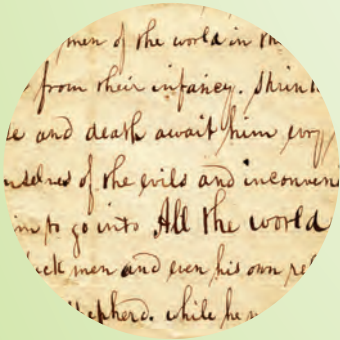 men of the world in
from their infancy. Shrink
and death await him every
of the evils and
to go into All the world
men and even his own
Shepherd. while he